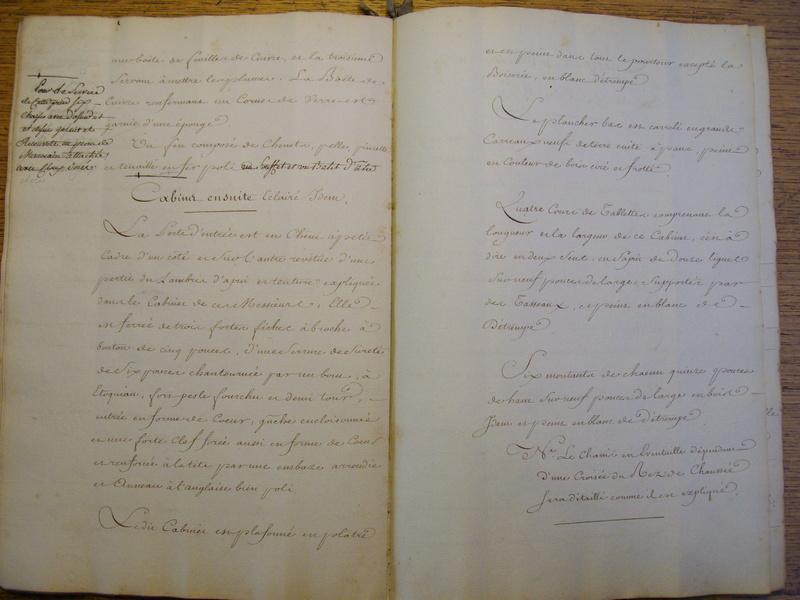 une boîte de feuilles de Cuivre, et la troisieme
Servant à mettre les plumes. La Boîte de
Cuivre renfermant un Cornet de Verre est
garnie d'une éponge
Un feu composé de Chenets, pelle, pincette
et tenaille en fer poli
Cabinet ensuite Eclairé Idem.
La Porte d'entrée est en Chêne à petit
Cadre d'un coté et Sur l'autre revêtue d'une
partie du Lambris d'apui et tenture expliquée
dans le Cabinet de ces Messieurs, Elle
est ferrée de trois fortes fiches à broche à
bouton de cinq pouces, d'une Serrure de Sureté
de Six pouces chantournée par un bout, à
Etoquiau, fors-peste fourchu et demi tour,
entrée en forme de Coeur, gache encloisonnée
et une forte Clef forée aussi en forme de Coeur
et renforcée à la tête par une embase arrondie
et Anneau à l'anglaise bien poli.
Ledit Cabinet est plafonné en platre
Chaises
de
Recouverte en peau de
Marocain
avec Cloux dorés
et est peint dans tout le pourtour excepté la
Boiserie, en blanc d'étrempe
Le plancher bas est carrelé en grands
Carreaux neufs de terre cuite à pans peints
en Couleur de bois ciré et frotté
Quatre Cours de Tablettes comprenant la
longueur et la largeur de ce Cabinet, c'est à
dire en deux Sens, en Sapin de Douze lignes
Sur neuf pouces de large, Supportés par
des Tasseaux, et peints en blanc de
Détrempe
Six montants de chacun quinze pouces
de haut Sur neuf pouces de large en bois
Idem et peints en blanc de Détrempe
Nta. Le Chassis en Eventaille dépendant
d'une Croisée du Rez de Chaussée
Sera détaillé comme il est expliqué.